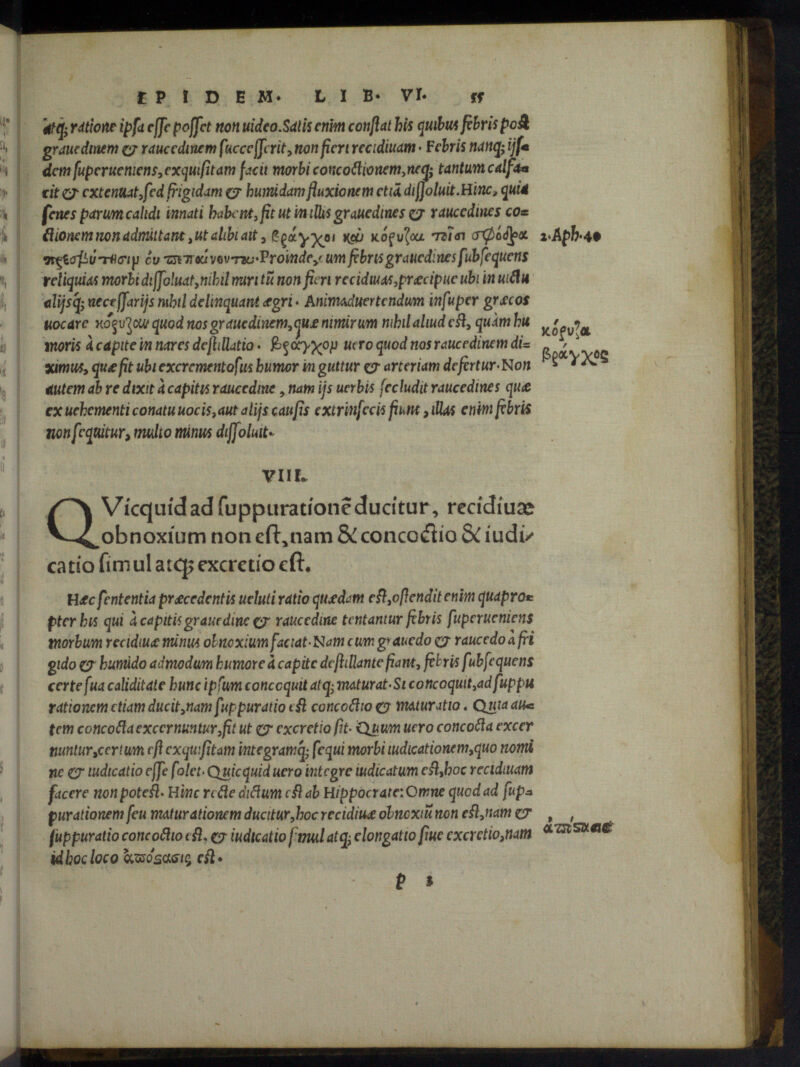 EPIDEM. LIB. VI. 55
atq; ratione ipsa esse posset non uideo. Satis enim constat his quibus febris post
grauedinem & raucedinem successerit, non fieri recidiuam. Febris nanq; ijsa
dem superueniens, exquisitam facit morbi concoctionem, neq; tantum calfa=
cit & extenuat, sed frigidam & humidam fluxionem etiā dissoluit. Hinc, quia
senes parum calidi innati habent, fit ut in illis grauedines & raucedines co=
ctionem non admittant, ut alibi ait, βράγχοι καὶ κόρυζαι τοῖσι σφόδρα 2. Aph. 40
πρεσβύτῃσιν οὐ πεπαίνονται. Proinde, cum febris grauedines subsequens
reliquias morbi dissoluat, nihil miri tū non fieri recidiuas, præcipue ubi in uictu
alijsq; necessarijs nihil delinquant ægri. Animaduertendum insuper græcos
uocare κόρυζαν quod nos grauedinem, quæ nimirum nihil aliud est, quàm hu κόρυζα
moris à capite in nares destillatio. βράγχον uero quod nos raucedinem di=
ximus, quæ fit ubi excrementosus humor in guttur & arteriam defertur. Non βράγχος
autem ab re dixit à capitis raucedine, nam ijs uerbis secludit raucedines quæ
ex uehementi conatu uocis, aut alijs causis extrinsecis fiunt, illas enim febris
non sequitur, multo minus dissoluit.
VIII.
QVicquid ad suppurationē ducitur, recidiuæ
obnoxium non est, nam & concoctio & iudi/
catio simul atq; excretio est.
Hæc sententia præcedentis ueluti ratio quædam est, ostendit enim quapro=
pter his qui à capitis grauedine & raucedine tentantur febris superueniens
morbum recidiuæ minus obnoxium faciat. Nam cum grauedo & raucedo à fri
gido & humido admodum humore à capite destillante fiant, febris subsequens
certe sua caliditate hunc ipsum concoquit atq; maturat. Si concoquit, ad suppu
rationem etiam ducit, nam suppuratio est concoctio & maturatio. Quia au=
tem concocta excernuntur, fit ut & excretio sit. Quum uero concocta excer
nuntur, certum est exquisitam integramq; sequi morbi iudicationem, quo nomi
ne & iudicatio esse solet. Quicquid uero integre iudicatum est, hoc recidiuam
facere non potest. Hinc recte dictum est ab Hippocrate: Omne quod ad sup=
purationem seu maturationem ducitur, hoc recidiuæ obnoxiū non est, nam &
suppuratio concoctio est, & iudicatio simul atq; elongatio siue excretio, nam ἀπόστασις
id hoc loco ἀπόστασις est.